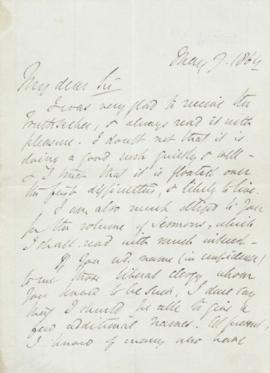 May 7. 1864
My dear Sir
I was very glad to receive the
Truthseeker, & always read it with
pleasure. I doubt not that it is
doing a good work quietly & well
& I trust that it is floated over
the first difficulties, & likely to live.
I am also much obliged to you
for the volume of Sermons, which
I shall read with much interest.
If you wd. name (in confidence)
to me those liberal clergy whom
you know to be such, I dare say
that I should be able to give a
few additional names. At present,
I know of many who have